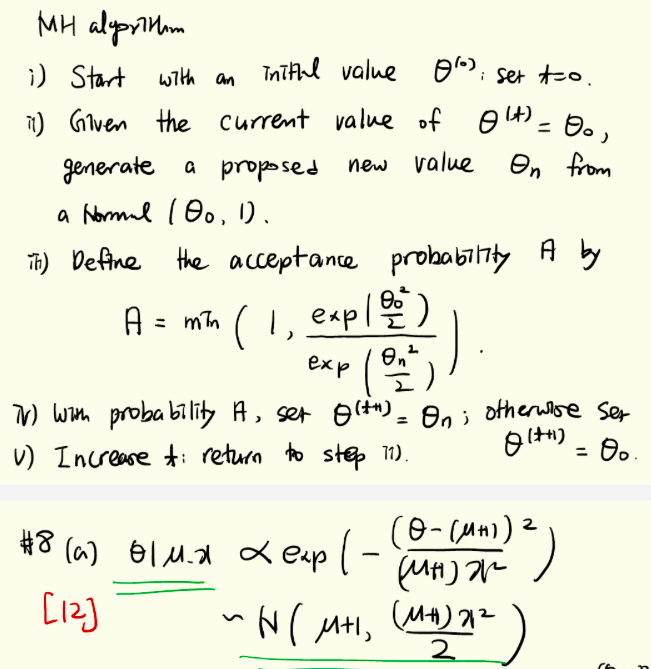 MH algorithm
i) Start with an initial value θ^(0); set t=0.
ii) Given the current value of θ^(t) = θ₀,
generate a proposed new value θₙ from
a Normal (θ₀, 1).
iii) Define the acceptance probability A by
A = min ( 1, exp(θ₀²/2) / exp(θₙ²/2) ).
iv) With probability A, set θ^(t+1) = θₙ ; otherwise set
θ^(t+1) = θ₀.
v) Increase t; return to step ii).
#8 (a) θ|μ.x ∝ exp ( - (θ-(μ+1))² / (μ+1)x² )
[12]
~ N ( μ+1, (μ+1)x² / 2 )